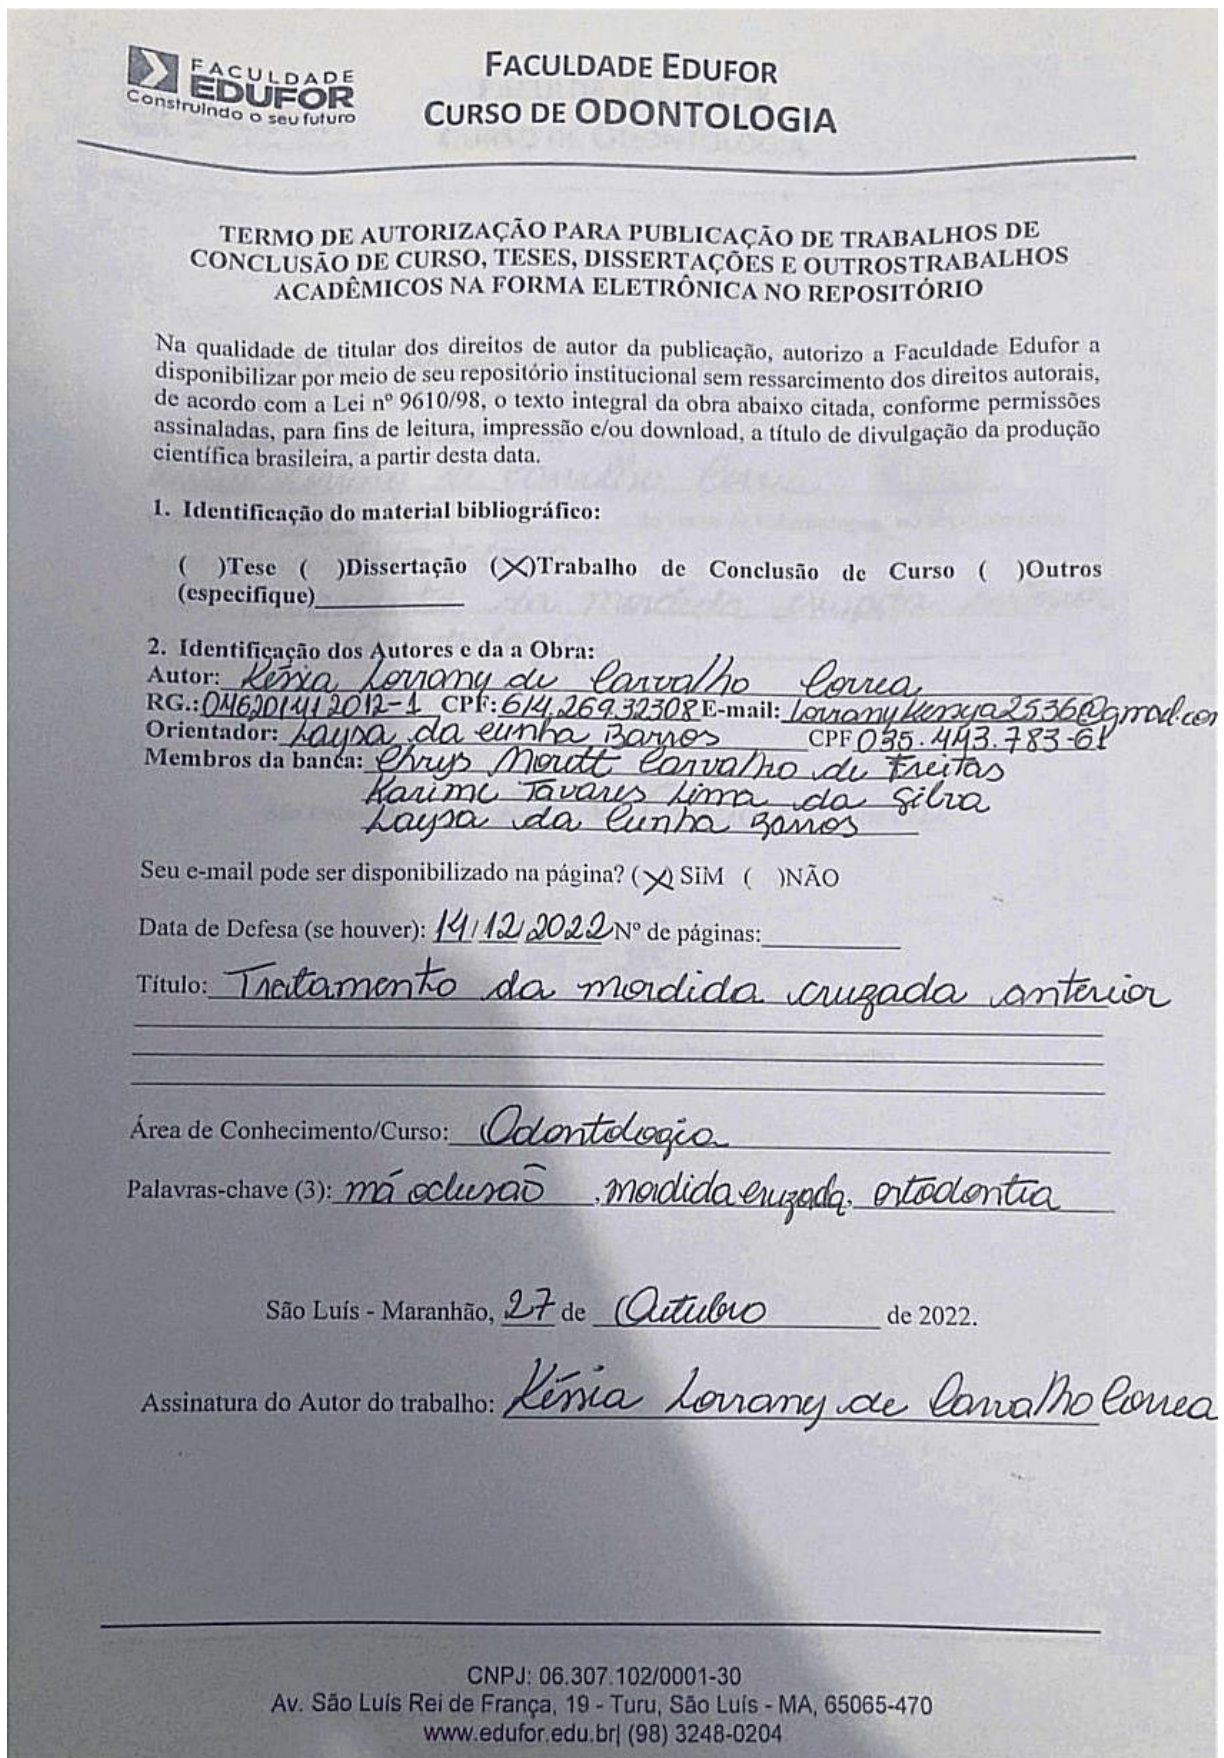 FACULDADE
EDUFOR
Construindo o seu futuro
FACULDADE EDUFOR
CURSO DE ODONTOLOGIA
TERMO DE AUTORIZAÇÃO PARA PUBLICAÇÃO DE TRABALHOS DE
CONCLUSÃO DE CURSO, TESES, DISSERTAÇÕES E OUTROSTRABALHOS
ACADÊMICOS NA FORMA ELETRÔNICA NO REPOSITÓRIO
Na qualidade de titular dos direitos de autor da publicação, autorizo a Faculdade Edufor a
disponibilizar por meio de seu repositório institucional sem ressarcimento dos direitos autorais,
de acordo com a Lei nº 9610/98, o texto integral da obra abaixo citada, conforme permissões
assinaladas, para fins de leitura, impressão e/ou download, a título de divulgação da produção
científica brasileira, a partir desta data.
1. Identificação do material bibliográfico:
( )Tese ( )Dissertação (X)Trabalho de Conclusão de Curso ( )Outros
(especifique)__________
2. Identificação dos Autores e da a Obra:
Autor: Kênia Lorrany de Carvalho Correa
RG.: 046201412012-1 CPF: 614.269.323 08 E-mail: lorranykenya2536@gmail.com
Orientador: Laysa da cunha Barros CPF 035.443.783-61
Membros da banca: Chrys Morett Carvalho de Freitas
Karime Tavares Lima da Silva
Laysa da Cunha Barros
Seu e-mail pode ser disponibilizado na página? (X) SIM ( )NÃO
Data de Defesa (se houver): 14/12/2022 Nº de páginas:__________
Título: Tratamento da mordida cruzada anterior
Área de Conhecimento/Curso: Odontologia
Palavras-chave (3): má oclusão, mordida cruzada, ortodontia
São Luís - Maranhão, 27 de Outubro de 2022.
Assinatura do Autor do trabalho: Kênia Lorrany de Carvalho Correa
CNPJ: 06.307.102/0001-30
Av. São Luís Rei de França, 19 - Turu, São Luís - MA, 65065-470
www.edufor.edu.br| (98) 3248-0204